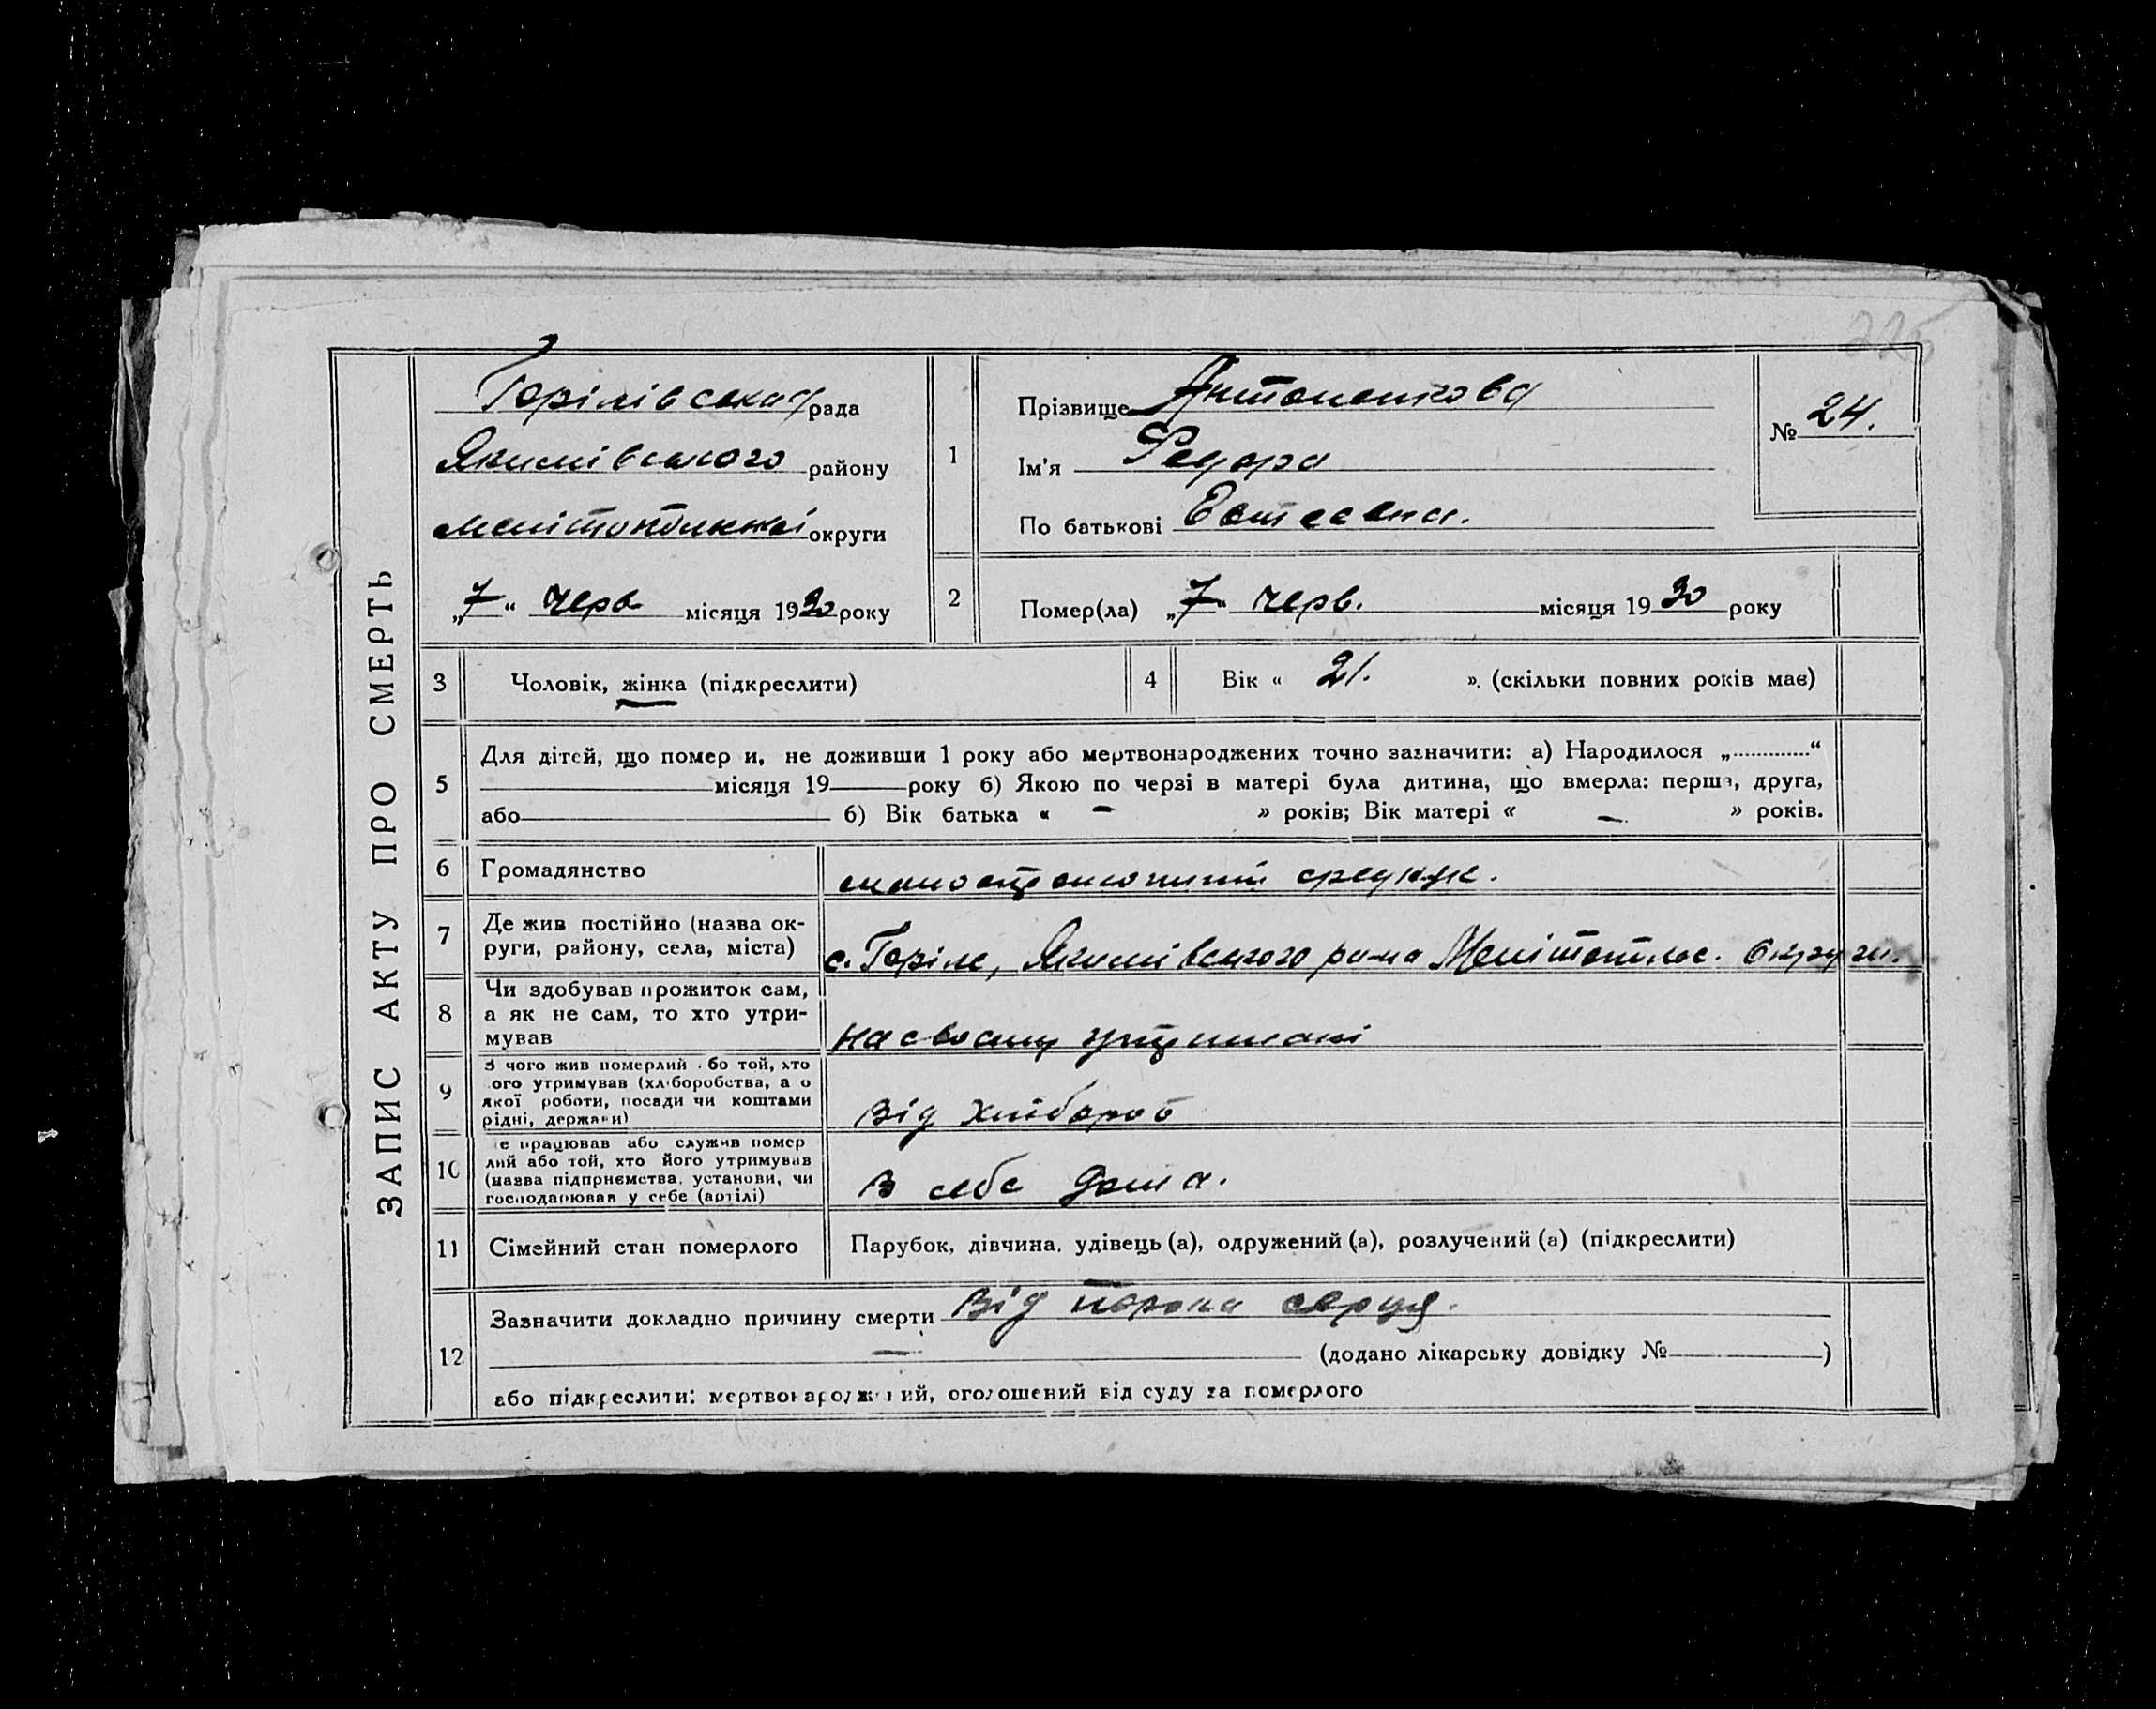 225
ЗАПИС АКТУ ПРО СМЕРТЬ
Горілівська рада
Якимівського району
Мелітопільської округи
„7“ черв. місяця 1930 року
1
Прізвище Антоненкова
Ім'я Федора
По батькові
№ 24.
2
Помер(ла) „7“ черв. місяця 1930 року
3 Чоловік, жінка (підкреслити)
4 Вік « 21. ». (скільки повних років має)
5
Для дітей, що помер и, не доживши 1 року або мертвонароджених точно зазначити: а) Народилося „.............“
місяця 19 року б) Якою по черзі в матері була дитина, що вмерла: перша, друга,
або б) Вік батька « – » років; Вік матері « – » років.
6 Громадянство
7
Де жив постійно (назва ок-
руги, району, села, міста)
с. Горіле, Якимівського р-на Мелітопільс. округи.
8
Чи здобував прожиток сам,
а як не сам, то хто утри-
мував
на своєму утриманні
9
З чого жив померлий або той, хто
його утримував (хліборобства, або
якої роботи, посади чи коштами
рідні, держави)
від хлібороб
10
Де працював або служив помер
лий або той, хто його утримував
(назва підприємства, установи, чи
господарював у себе (артілі)
в себе дома.
11 Сімейний стан померлого
Парубок, дівчина, удівець (а), одружений (а), розлучений (а) (підкреслити)
12
Зазначити докладно причину смерти від порока серця.
– (додано лікарську довідку № )
або підкреслити: мертвонароджений, оголошений від суду за померлого